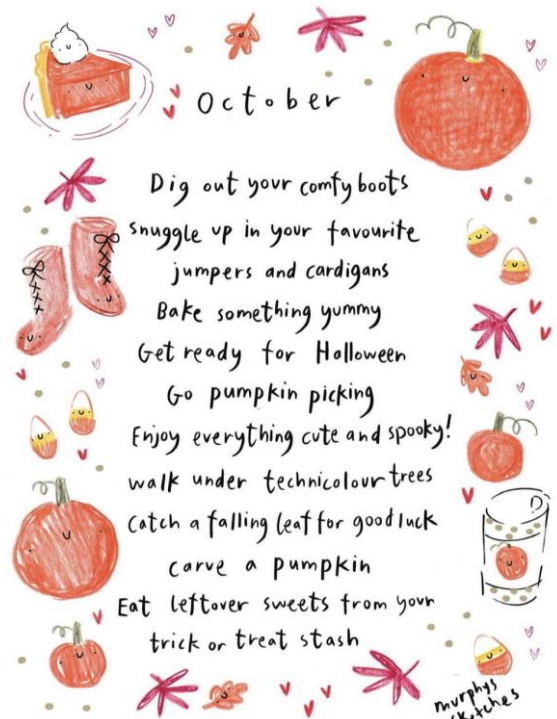 October
Dig out your comfy boots
snuggle up in your favourite
jumpers and cardigans
Bake something yummy
Get ready for Halloween
Go pumpkin picking
Enjoy everything cute and spooky!
walk under technicolour trees
Catch a falling leaf for good luck
carve a pumpkin
Eat leftover sweets from your
trick or treat stash
murphys
sketches